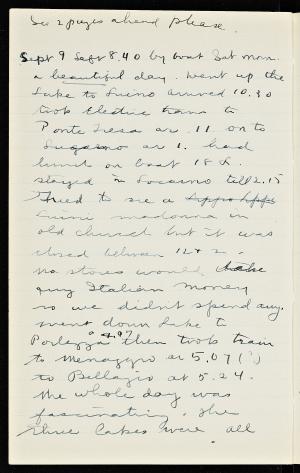 See 2 pages ahead please.
Sept 9 Left 8.40 by boat Sat morn.
a beautiful day. Went up the
lake to Luino arrived 10.30
took Electric tram to
Ponte Tresa ar. 11. on to
Lugano ar 1. had
lunch on boat 18 L.
stayed in Locarno till 2.15
Tried to see a
Luini madonna in
old church but it was
closed between 12 & 2 -
No stores would take
any Italian money
so we didn't spend any.
went down lake to
Porlezza then took train
to Menaggio ar 5.07 (?)
to Bellagio at 5.24.
The whole day was
fascinating. The
three Lakes were all